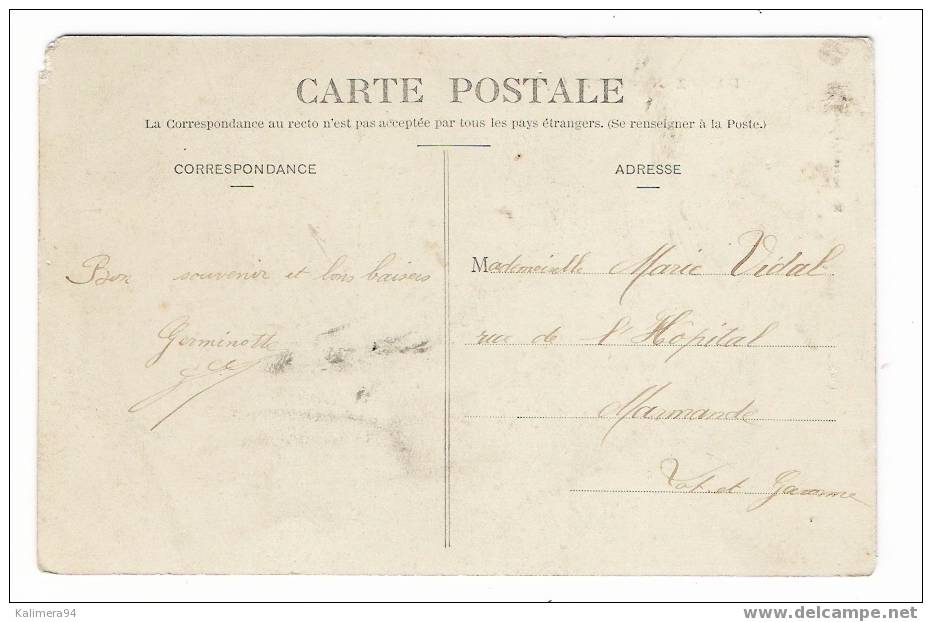 CARTE POSTALE
La Correspondance au recto n'est pas acceptée par tous les pays étrangers. (Se renseigner à la Poste.)
CORRESPONDANCE
Bon souvenir et bons baisers
Germinotte
ADRESSE
Mademoiselle Marie Vidal
rue de l'Hôpital
Marmande
Lot et Garonne
Kalimera94
www.delcampe.net